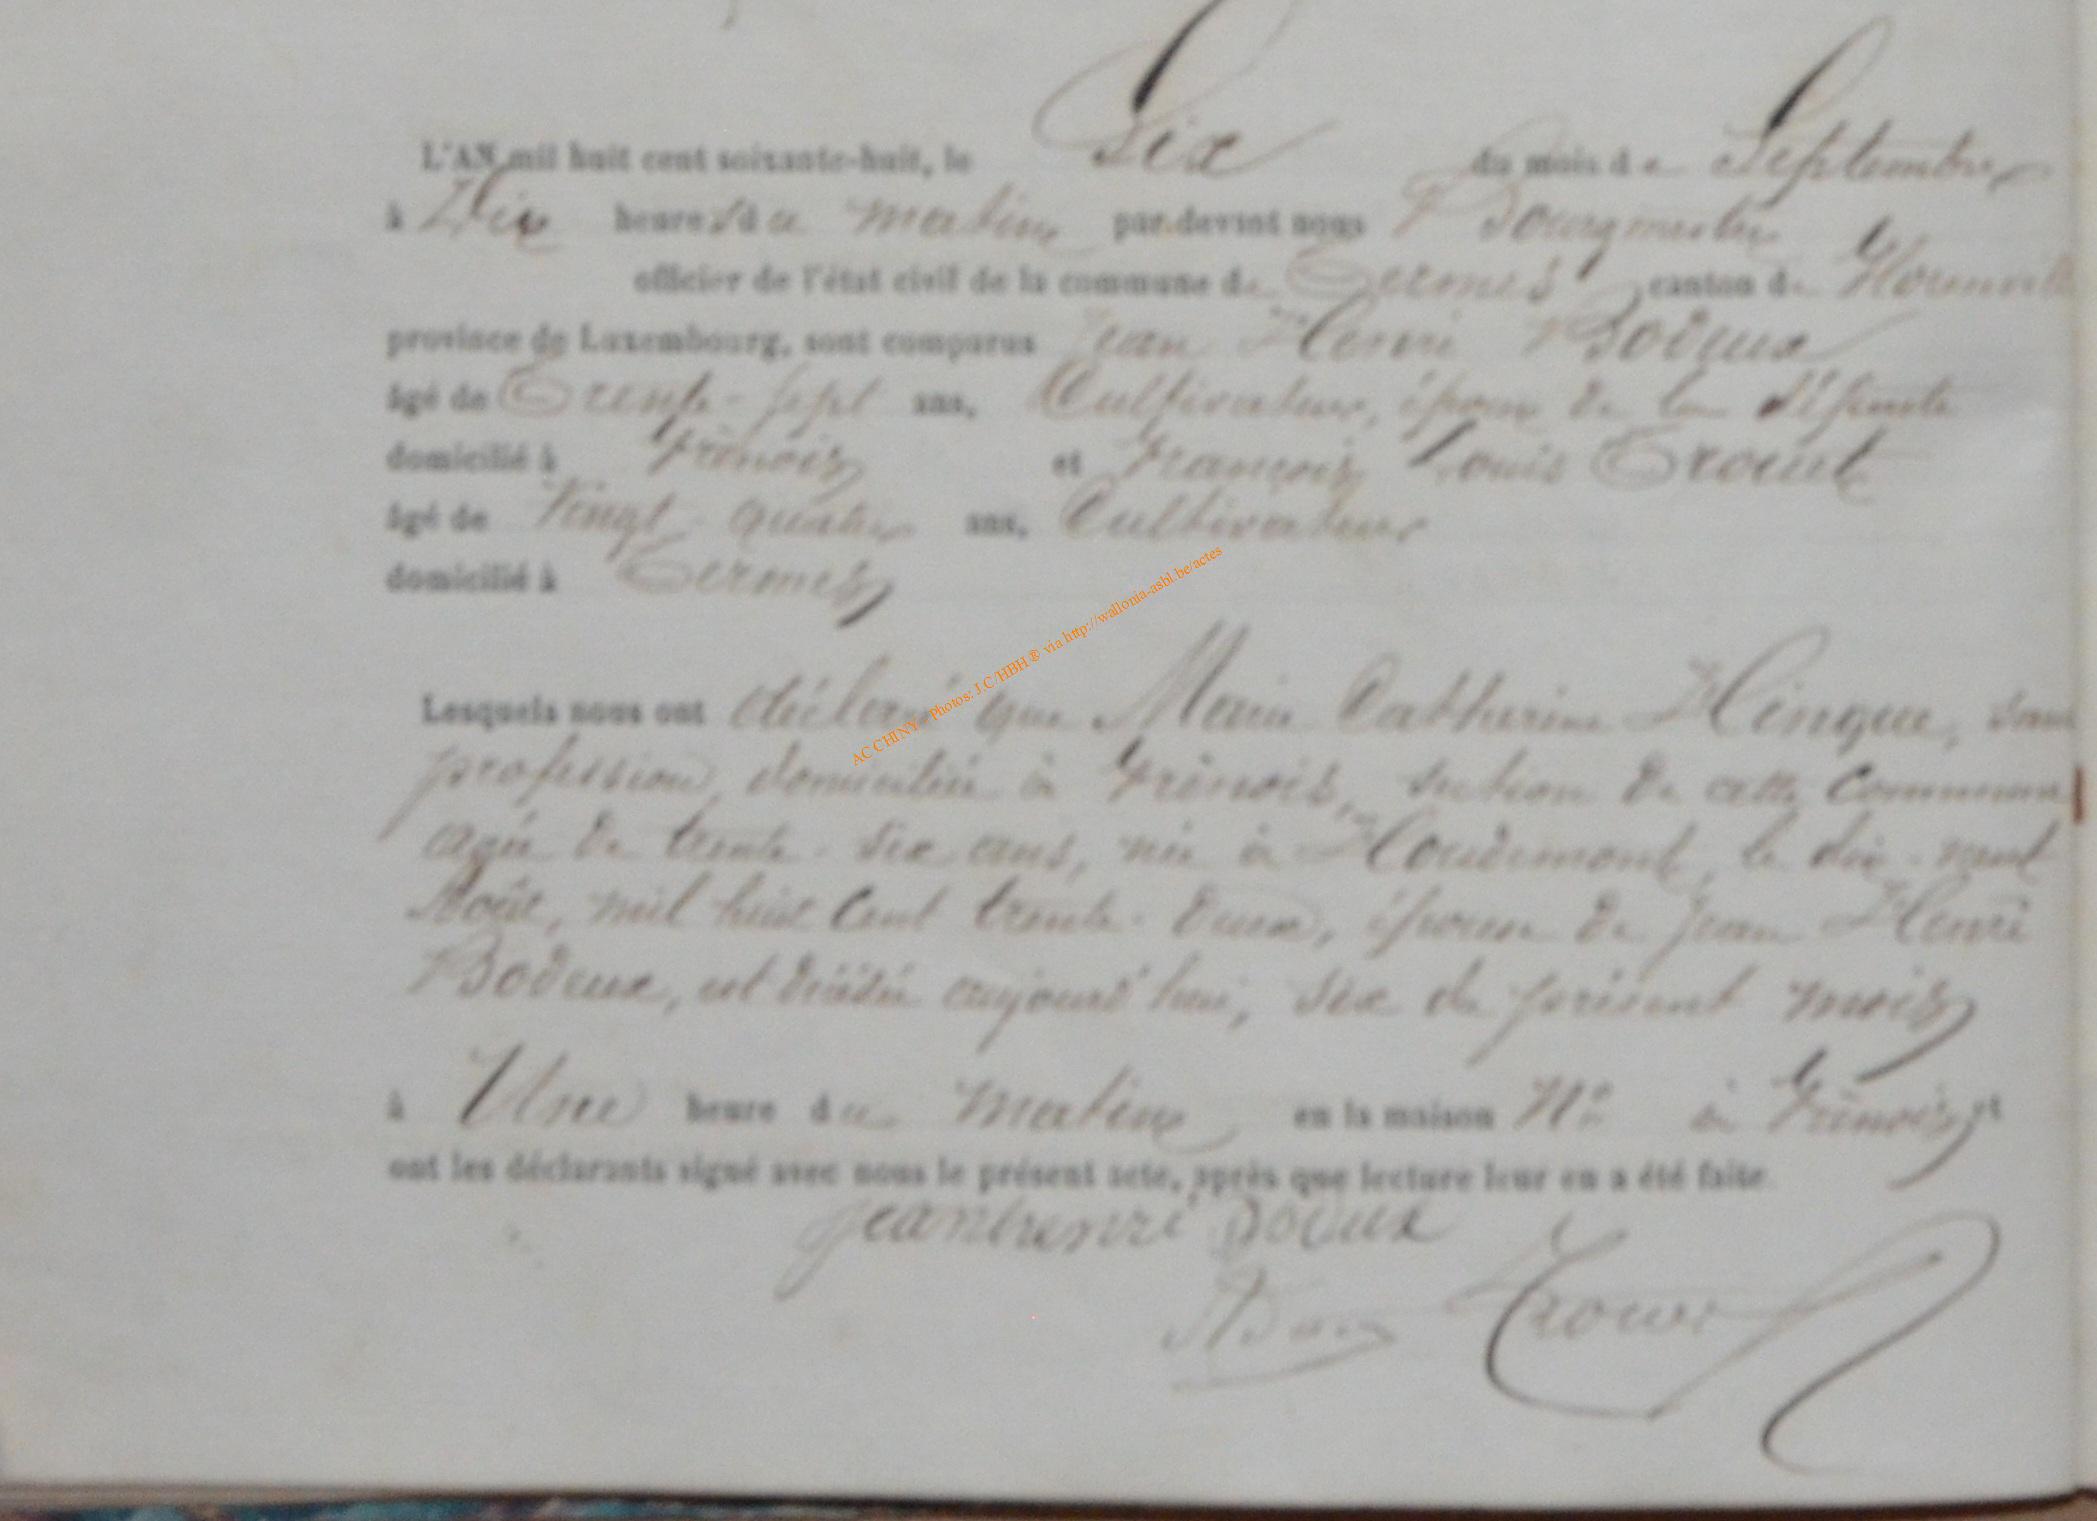 L'AN mil huit cent soixante-huit, le Six du mois de Septembre,
à Dix heures du matin par-devant nous Bourgmestre
officier de l'état civil de la commune de Termes, canton de Florenville
province de Luxembourg, sont comparus Jean Henri Bodeux
âgé de Trente-sept ans, Cultivateur, époux de la défunte
domicilié à Frênois et François Louis
âgé de Vingt-quatre ans, Cultivateur
domicilié à Termes,
Lesquels nous ont déclaré que Marie Catherine Hingue, sans
profession, domiciliée à Frênois, section de cette Commune
agée de trente-six ans, née à Houdemont, le dix-neuf
Août, mil huit Cent trente-deux, épouse de Jean Henri
Bodeux, est décédée aujourd'hui, six du présent mois,
à Une heure du matin en la maison N° à Frênois, et
ont les déclarants signé avec nous le présent acte, après que lecture leur en a été faite.
jeanhenri Bodeux
AC CHINY - Photos: J.C/HBH ® via http://wallonia-asbl.be/actes